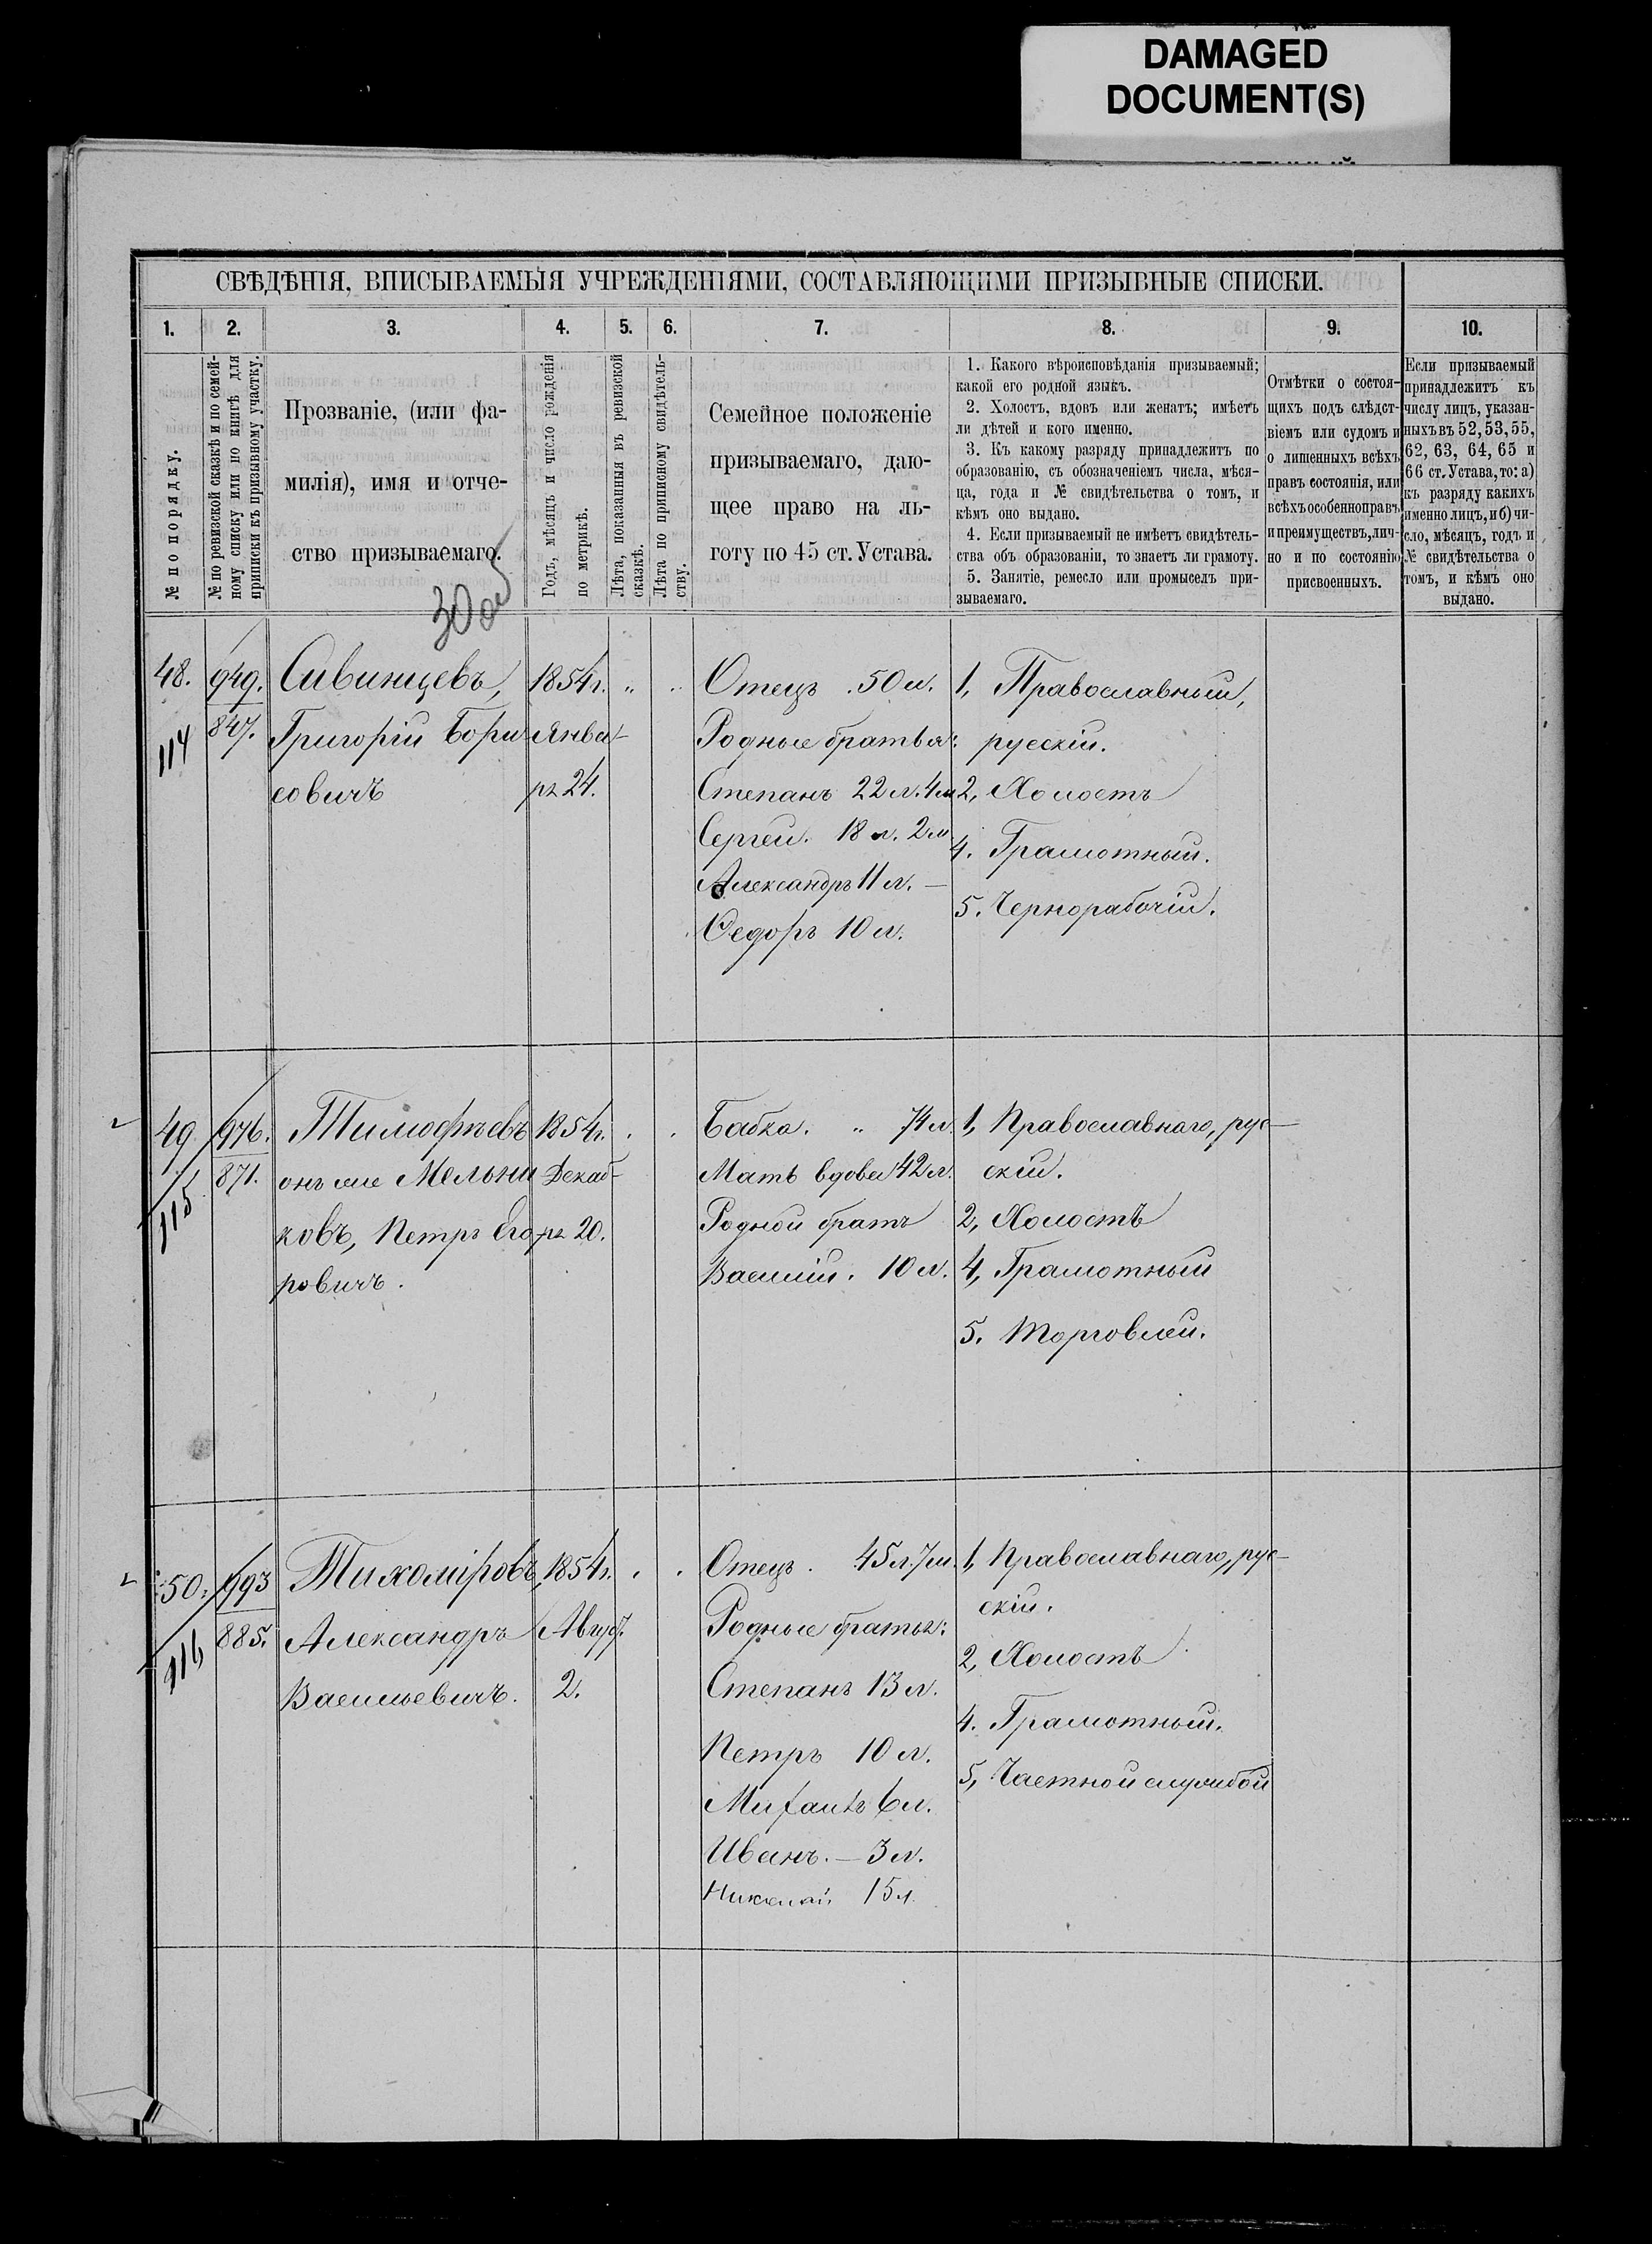 DAMAGED
DOCUMENT(S)
СВѢДѢНІЯ, ВПИСЫВАЕМЫЯ УЧРЕЖДЕНІЯМИ, СОСТАВЛЯЮЩИМИ ПРИЗЫВНЫЕ СПИСКИ.
1. 2. 3. 4. 5. 6. 7. 8. 9. 10.
№ по порядку.
№ по ревизской сказкѣ и по семей-
ному списку или по книгѣ для
приписки къ призывному участку.
Прозваніе, (или фа-
милія), имя и отче-
ство призываемаго.
Годъ, мѣсяцъ и число рожденія
по метрикѣ.
Лѣта, показанныя въ ревизской
сказкѣ.
Лѣта по приписному свидѣтель-
ству.
Семейное положеніе
призываемаго, даю-
щее право на ль-
готу по 45 ст. Устава.
1. Какого вѣроисповѣданія призываемый;
какой его родной языкъ.
2. Холостъ, вдовъ или женатъ; имѣетъ
ли дѣтей и кого именно.
3. Къ какому разряду принадлежитъ по
образованію, съ обозначеніемъ числа, мѣся-
ца, года и № свидѣтельства о томъ, и
кѣмъ оно выдано.
4. Если призываемый не имѣетъ свидѣтель-
ства объ образованіи, то знаетъ ли грамоту.
5. Занятіе, ремесло или промыселъ при-
зываемаго.
Отмѣтки о состоя-
щихъ подъ слѣдст-
віемъ или судомъ и
о лишенныхъ всѣхъ
правъ состоянія, или
всѣхъ особенно правъ
и преимуществъ, лич-
но и по состоянію
присвоенныхъ.
Если призываемый
принадлежитъ къ
числу лицъ, указан-
ныхъ въ 52, 53, 55,
62, 63, 64, 65 и
66 ст. Устава, то: а)
къ разряду какихъ
именно лицъ, и б) чи-
сло, мѣсяцъ, годъ и
№ свидѣтельства о
томъ, и кѣмъ оно
выдано.
48.
114
949.
847.
Сивинцевъ,
Григорій Бори
совичъ
1854 г.
Янва-
рь 24.
Отецъ . 50 л.
Родные братья:
Степанъ 22 л. 4 м
Сергей. 18 л. 2 м
Александръ 11 л. —
Ѳедоръ 10 л.
1, Православный,
русскій.
2, Холостъ
4. Грамотный.
5. Чернорабочій.
49.
115
976.
871.
Тимофѣевъ
онъ же Мельни
ковъ, Петръ Его
ровичъ.
1854 г.
Декаб-
рь 20.
Бабка. „ 74 л.
Мать вдова 42 л.
Родной братъ
Василій. 10 л.
1, Православнаго, рус-
скій.
2, Холостъ
4, Грамотный
5. Торговлей.
50.
116
993
885.
Тихоміровъ,
Александръ
Васильевичъ.
1854 г.
Август.
2.
Отецъ. 45 л. 7 м.
Родные братья:
Степанъ 13 л.
Петръ 10 л.
Михаилъ 6 л.
Иванъ. — 3 л.
Николай 15 л.
1, Православнаго, рус-
скій.
2, Холостъ
4. Грамотный.
5, Частной службой